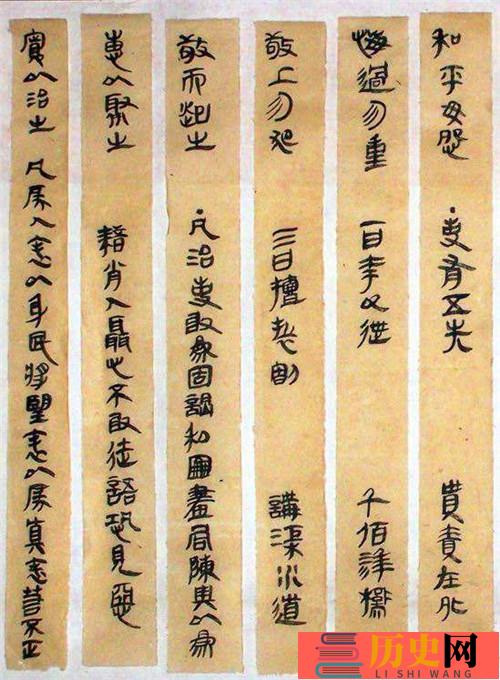 和平毋怨 ·吏有五失 貰責在外
悔過勿重 一曰夸以迣 千佰津橋
敬上勿犯 三曰擅裚割 講渠水道
敬而起之 ·凡治事敢為固謁私圖畫局陳畀以為
惠以聚之 耤肖人聶心不敢徒語恐見惡
寬以治之 凡戾人表以身民將望表以戾真表若不正
历史网
LI SHI WANG